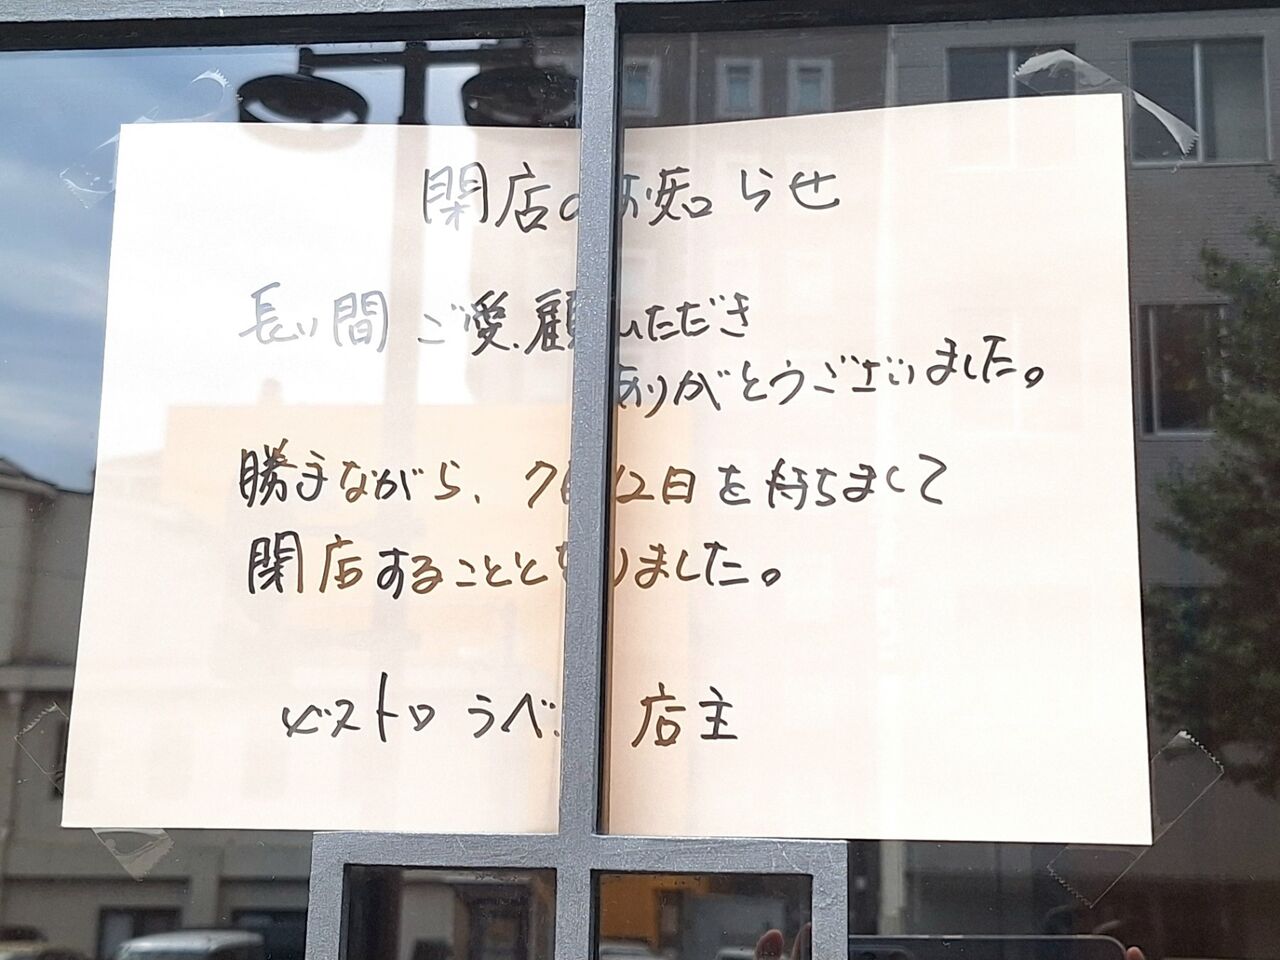 閉店のお知らせ
長い間ご愛顧いただき
ありがとうございました。
勝手ながら、7月12日を持ちまして
閉店することとなりました。
ビストロ 店主